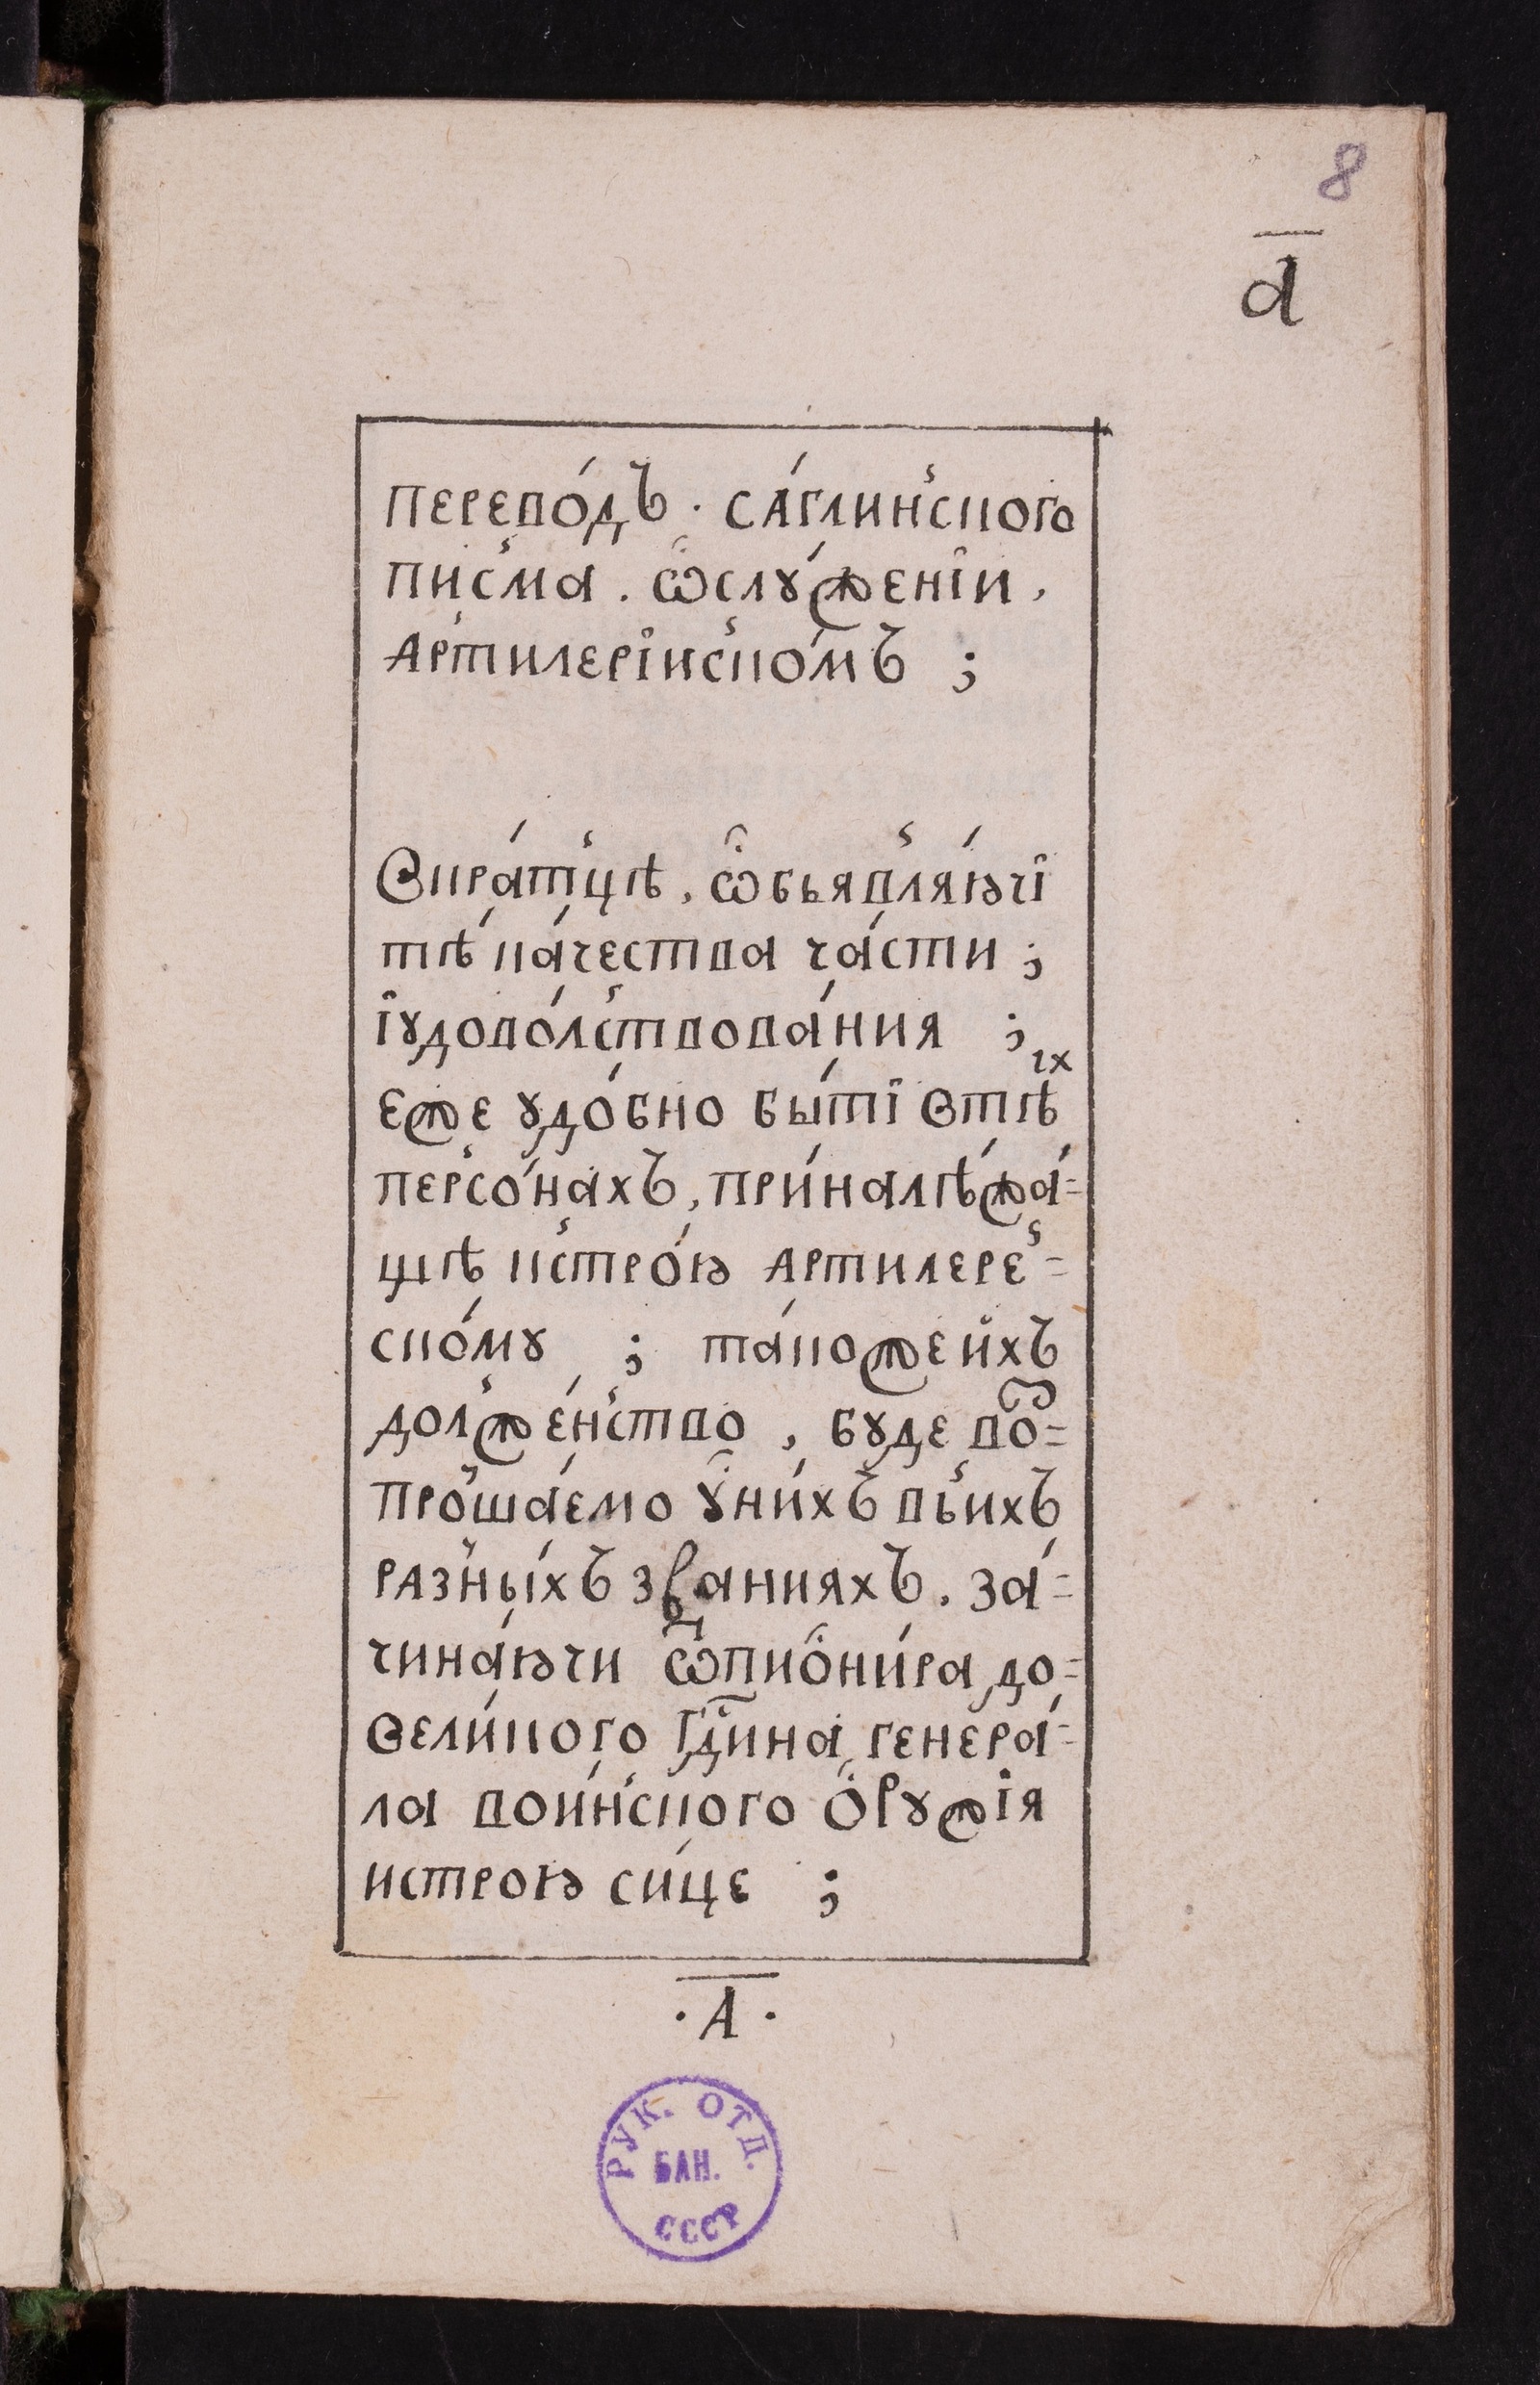 8
а
перево́дъ. са́глинскаго
писма. ѡ҆слꙋже́нїи,
артилерїиско́мъ ;
Вкра́тцѣ, ѡ҆бьявля́ючї
тѣ ка́чества ча́сти ;
їꙋдово́лствова́ния ;
еже ꙋдо́бно бы́тї втѣхъ
персо́нахъ, при́налѣжа́=
щѣ кстро́ю артилере=
ско́мꙋ ; та́кожеи́хъ
долже́нство, бꙋде во=
проша́емо ꙋ҆ни́хъ вьихъ
разны́хъ званияхъ. за́=
чина́ючи ѿпио҆ни́ра до=
вели́кого гд҃ина генера́=
ла вои́нского о҆рꙋжїя
истрою си́це ;
· А ·
РУК. ОТД.
БАН.
СССР